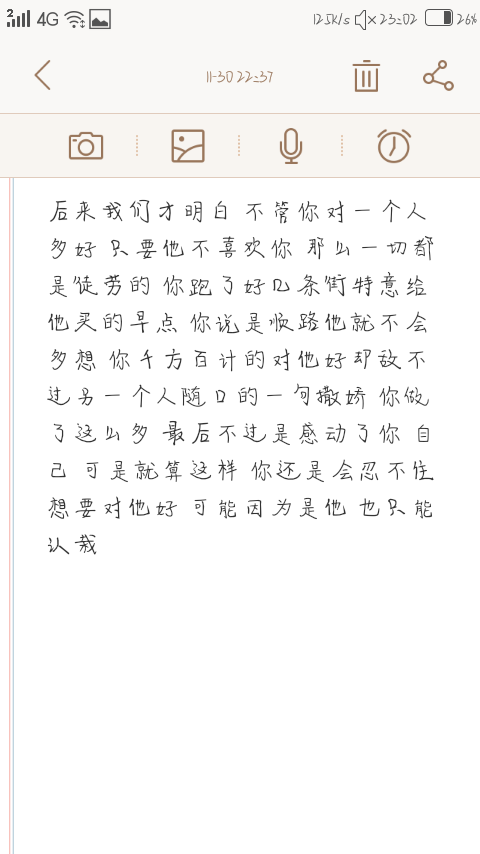 2 4G 125K/s 23:02 26%
11-30 22:37
后来我们才明白 不管你对一个人
多好 只要他不喜欢你 那么一切都
是徒劳的 你跑了好几条街特意给
他买的早点 你说是顺路他就不会
多想 你千方百计的对他好却敌不
过另一个人随口的一句撒娇 你做
了这么多 最后不过是感动了你 自
己 可是就算这样 你还是会忍不住
想要对他好 可能因为是他 也只能
认栽